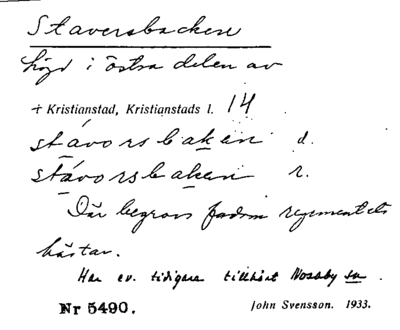 Staversbacken
höjd i östra delen av
+ Kristianstad, Kristianstads l. 14
stávorsbakən d.
stávorsbakən r.
Där begrovs fordom regementets
hästar.
Har ev. tidigare tillhört Nosaby sn.
Nr 5490. John Svensson. 1933.